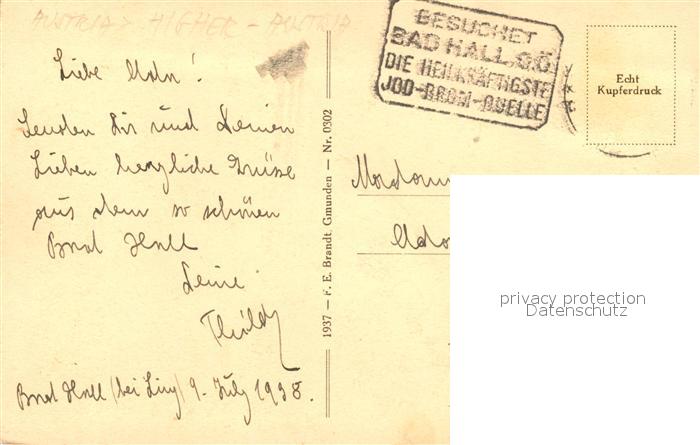 AUSTRIA > HIGHER - AUSTRIA
Liebe
Senden Dir und Deinen
Lieben herzliche Grüsse
aus dem so schönen
Bad Hall
Deine
Bad Hall (bei Linz) 9. July 1938.
1937 – F. E. Brandt, Gmunden – Nr. 0302
BESUCHET
BAD HALL, O.Ö.
DIE HEILKRÄFTIGSTE
JOD-BROM-QUELLE
Echt
Kupferdruck
privacy protection
Datenschutz